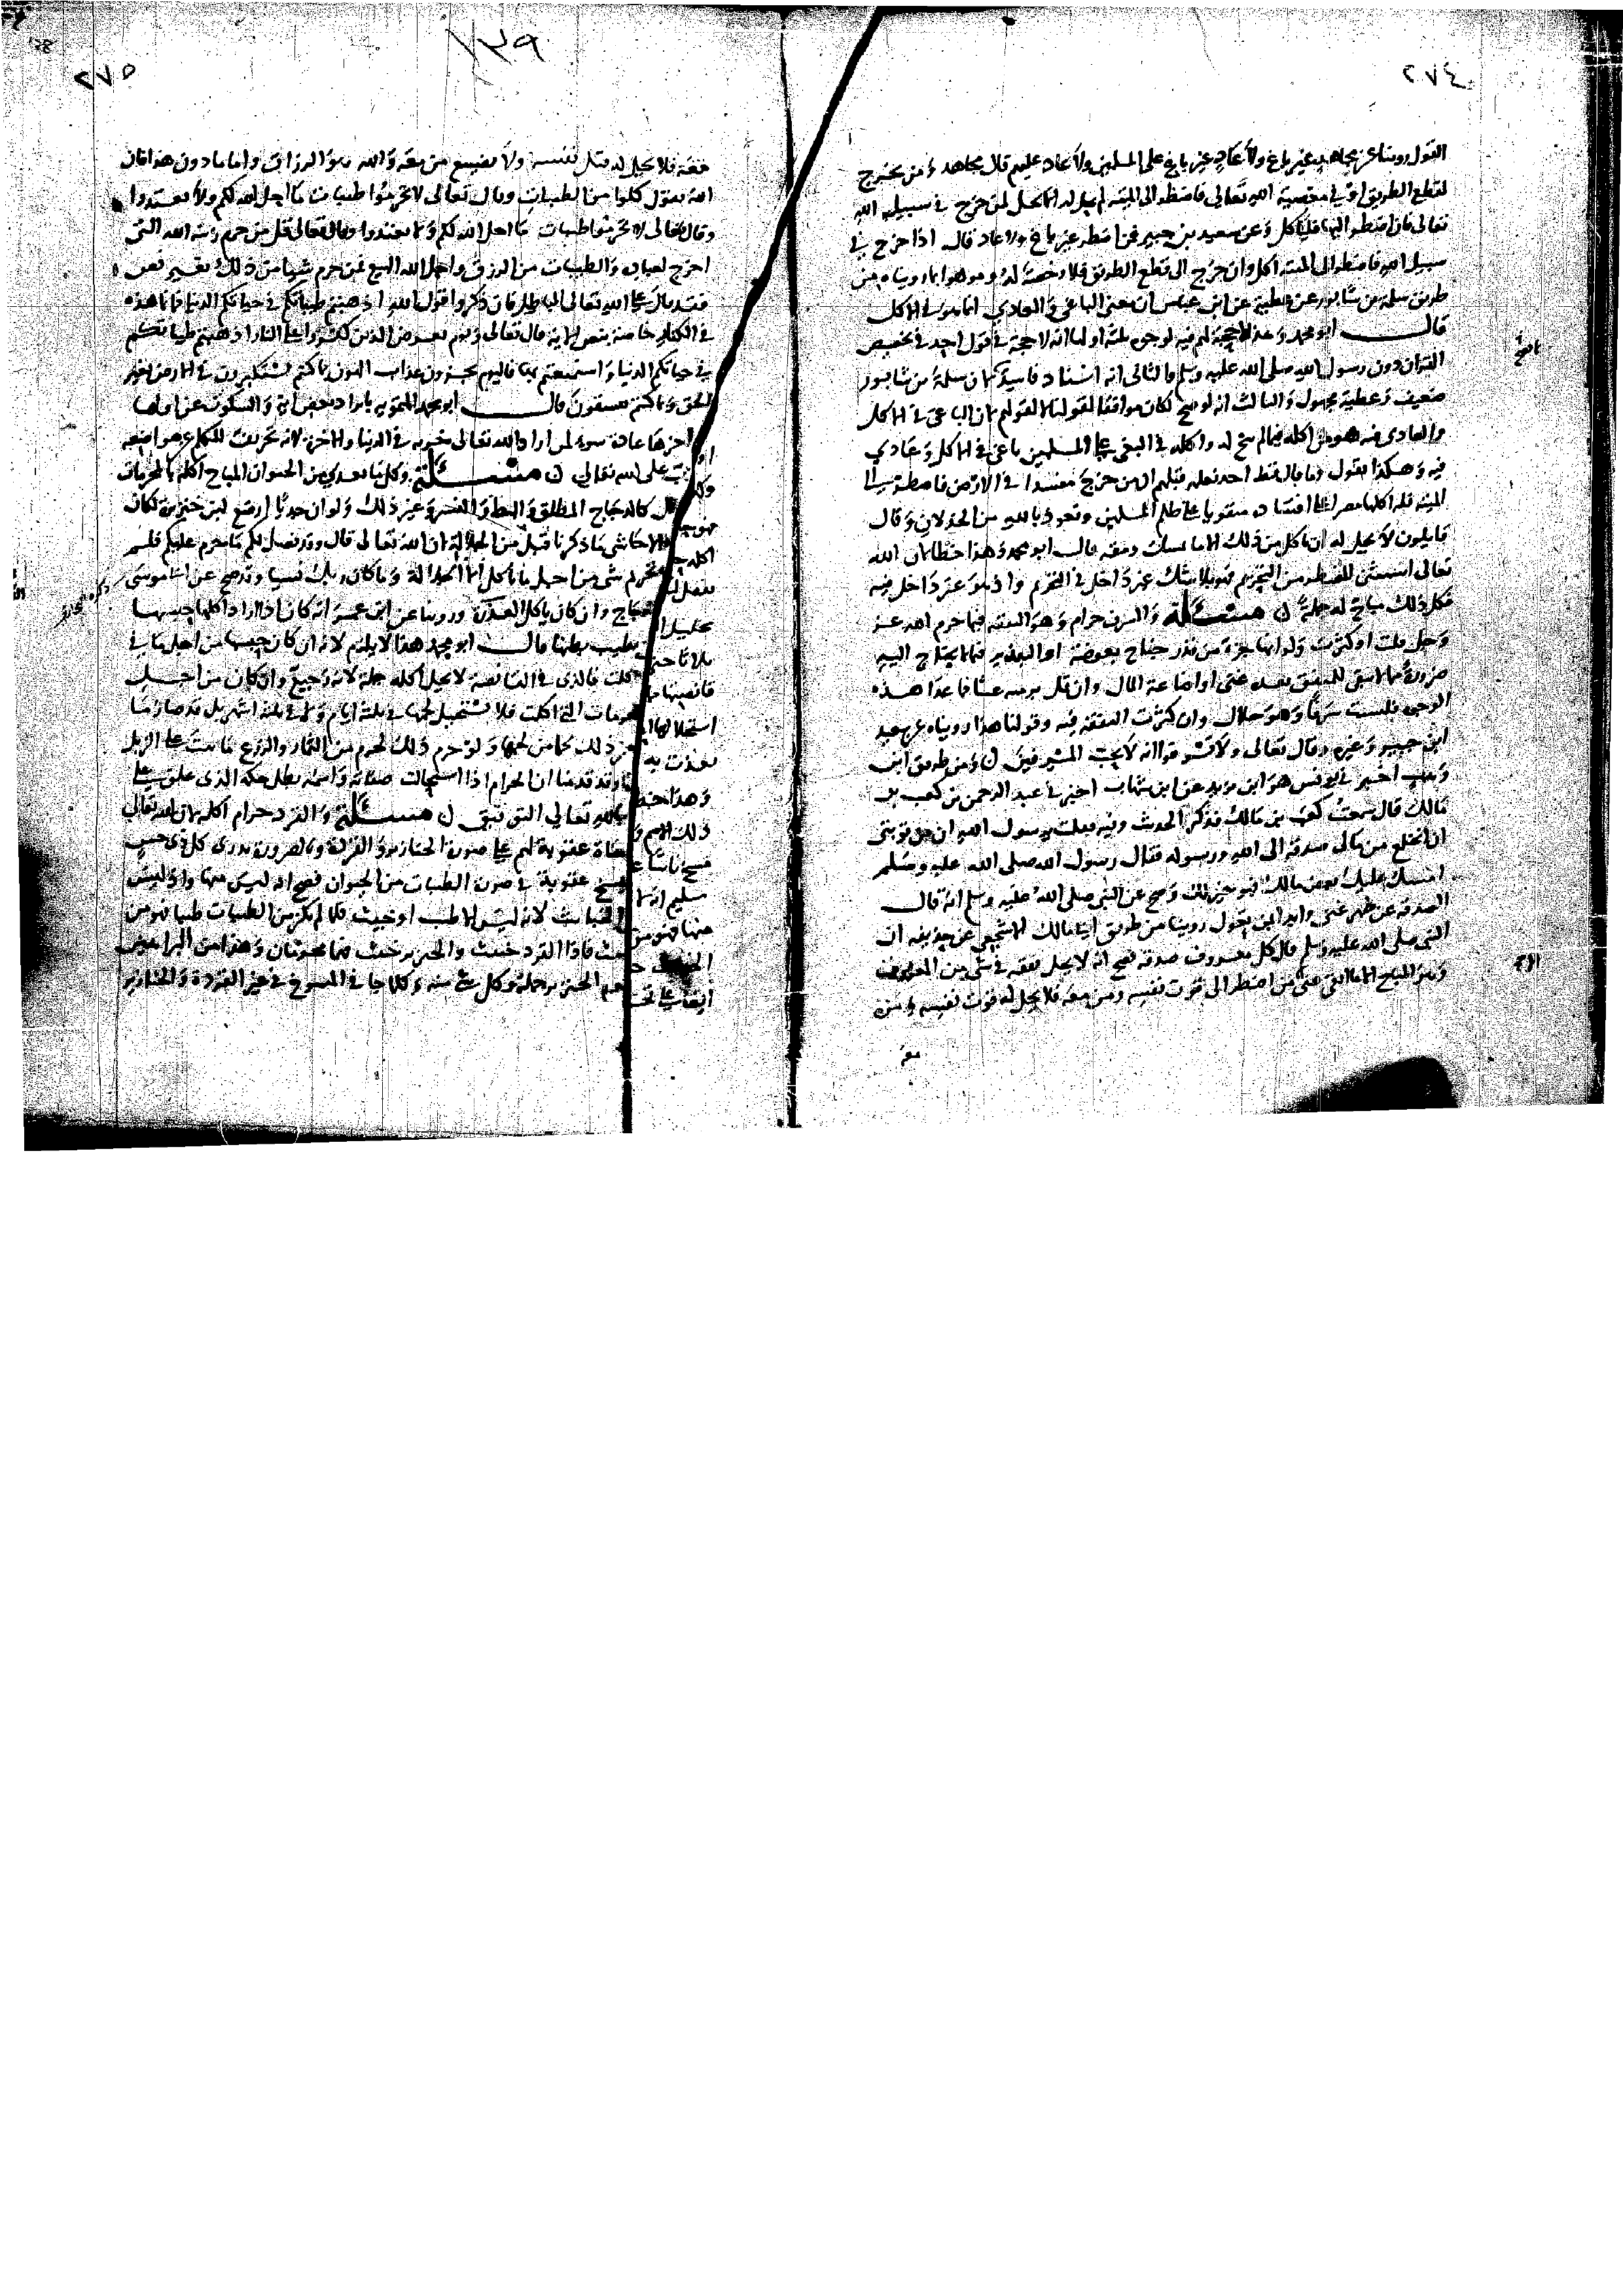 ٢٧٤
القول روينا عن مجاهد غير باغ ولا عاد غير باغ على المسلمين ولا عاد عليهم قال مجاهد ومن يخرج
لقطع الطريق او في معصية الله تعالى فاضطر الى الميتة لم يحل له انما يحل لمن خرج في سبيل الله
تعالى فان اضطر اليها فلياكل وعن سعيد بن جبير فمن اضطر غير باغ ولا عاد قال اذا خرج في
سبيل الله فاضطر الى الميتة اكل وان خرج الى قطع الطريق فلا رخصة له وموهوا بما رويناه من
طريق سلمة بن شابور عن عطية عن ابن عباس ان معنى الباغي والعادي انما هو في الاكل
قال ابو محمد وهذا لا حجة لهم فيه لوجوه ثلثة اولها انه لا حجة في قول احد في تخصيص
القران دون رسول الله صلى الله عليه وسلم والثاني انه اسناد فاسد لان سلمة بن شابور
ضعيف وعطية مجهول والثالث انه لو صح لكان موافقا لقولنا لا لقولهم لان الباغي في الاكل
والعادي فيه هو من اكله فيما لم يبح له واكله في البغي على المسلمين باغ في الاكل وعادي
فيه وهكذا نقول وما قال قط احد نعلمه قبلهم ان من خرج مفسدا في الارض فاضطر الى
الميتة فله اكلها مصرا على افساده متقويا على ظلم المسلمين ونعوذ بالله من الخذلان وقال
قايلون لا يحل له ان ياكل من ذلك الا ما يمسك رمقه قال ابو محمد وهذا خطا لان الله
تعالى استثنى المضطر من التحريم فهو بلا شك غير داخل في التحريم واذ هو غير داخل فيه
فكل ذلك مباح له جملة ن مسئلة والسرف حرام وهو النفقة فيما حرم الله عز
وجل قلت او كثرت ولو انها جزء من قدر جناح بعوضة او التبذير فيما لا يحتاج اليه
ضرورة مما لا يبقى للمنفق بعده غنى او اضاعة المال وان قل برميه عبثا فما عدا هذه
الوجوه فليست سرفا وهو حلال وان كثرت النفقة فيه وقولنا هذا رويناه عن سعيد
ابن جبير وغيره وقال تعالى ولا تسرفوا انه لا يحب المسرفين ن ومن طريق ابن
وهب اخبرني يونس هو ابن يزيد عن ابن شهاب اخبرني عبد الرحمن بن كعب بن
مالك قال سمعت كعب بن مالك فذكر الحديث وفيه فقلت يرسول الله ان من توبتي
ان انخلع من مالي صدقة الى الله ورسوله فقال رسول الله صلى الله عليه وسلم
امسك عليك بعض مالك فهو خير لك وصح عن النبي صلى الله عليه وسلم انه قال
الصدقة عن ظهر غنى وابدا بمن تعول روينا من طريق ابي مالك الاشجعي عن حذيفة ان
النبي صلى الله عليه وسلم قال كل معروف صدقة فصح انه لا يحل نفقة في شي من المعروف
وهو المباح الا ما ابقى غنى الا من اضطر الى قوت نفسه ومن معه فلا يحل له قوت نفسه ومن
معه
نافع
١٣٩
٢٧٥
معه فلا يحل له قتل نفسه ولا تضييع من معه والله هو الرزاق واما ما دون هذا فان
الله يقول كلوا من الطيبات وقال تعالى لا تحرموا طيبات ما احل الله لكم ولا تعتدوا
وقال تعالى لا تحرموا طيبات ما احل الله لكم ولا تعتدوا وقال تعالى قل من حرم زينة الله التي
اخرج لعباده والطيبات من الرزق واحل الله البيع فمن حرم شيا من ذلك بغير نص
فقد قال على الله تعالى الباطل فان ذكروا قول الله اذهبتم طيباتكم في حياتكم الدنيا فانما هذه
في الكفار خاصة بنص الاية قال تعالى ويوم يعرض الذين كفروا على النار اذهبتم طيباتكم
في حياتكم الدنيا واستمتعتم بها فاليوم تجزون عذاب الهون بما كنتم تستكبرون في الارض بغير
الحق وبما كنتم تفسقون قال ابو محمد المموه بايراد بعض اية والسكوت عن اولها
اخرها عادة سوء لمن اراد الله تعالى خزيه في الدنيا والاخرة لانه تحريف للكلم عن مواضعه
على الله تعالى ن مسئلة وكل ما تغذى من الحيوان المباح اكله بالمحرمات
كالدجاج المطلق والبط والنسر وغير ذلك ولو ان جديا ارضع لبن خنزيرة لكان
اكله حاشى ما ذكرنا قبل من الجلالة ان الله تعالى قال وقد فصل لكم ما حرم عليكم فلم
يفصل تحريم شي من اجل ما ياكل الا الجلالة وما كان ربك نسيا وقد صح عن ابي موسى
تحليل الدجاج وان كان ياكل القذر وروينا عن ابن عمر انه كان اذا اراد اكلها حبسها
ثلاثا حتى يطيب بطنها قال ابو محمد هذا لا يلزم لانه ان كان حبسها من اجل ما في
قانصتها مما اكلت فالذي في القانصة لا يحل اكله جملة لانه رجيع وان كان من اجل
استحالة المحرمات التي اكلت فلا يستحيل لحمها في ثلثة ايام ولا في ثلثة اشهر بل قد صار ما
تغذت به من ذلك لحما من لحمها ولو حرم ذلك لحرم من الثمار والزرع ما ينبت على الزبل
وهذا خطا وقد قدمنا ان الحرام اذا استحالت صفاته واسمه بطل حكمه الذي علق على
ذلك الاسم وبالله تعالى التوفيق ن مسئلة والقرد حرام اكله لان الله تعالى
مسخ ناسا عصاة عقوبة لهم على صورة الخنازير والقردة وبالضرورة يدري كل ذي حس
سليم انه لا يمسخ عقوبة في صورة الطيبات من الحيوان فصح انه ليس منها واذ ليس
منها فهو من الخبائث لانه ليس الا طيب او خبيث فما لم يكن من الطيبات طيبا فهو من
الخبائث خبيث فاذا القرد خبيث والخنزير خبيث فهما محرمان وهذا من البراهين
ايضا على تحريم الخنزير جملة وكل شي منه وكلما جا في المسوخ في غير القردة والخنازير